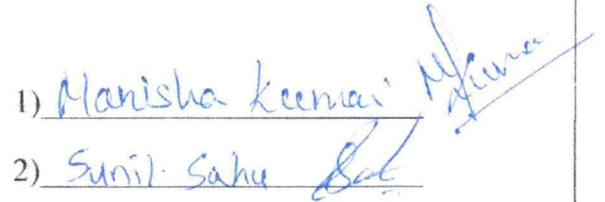 1) Manisha Kumari
2) Sunil Sahu